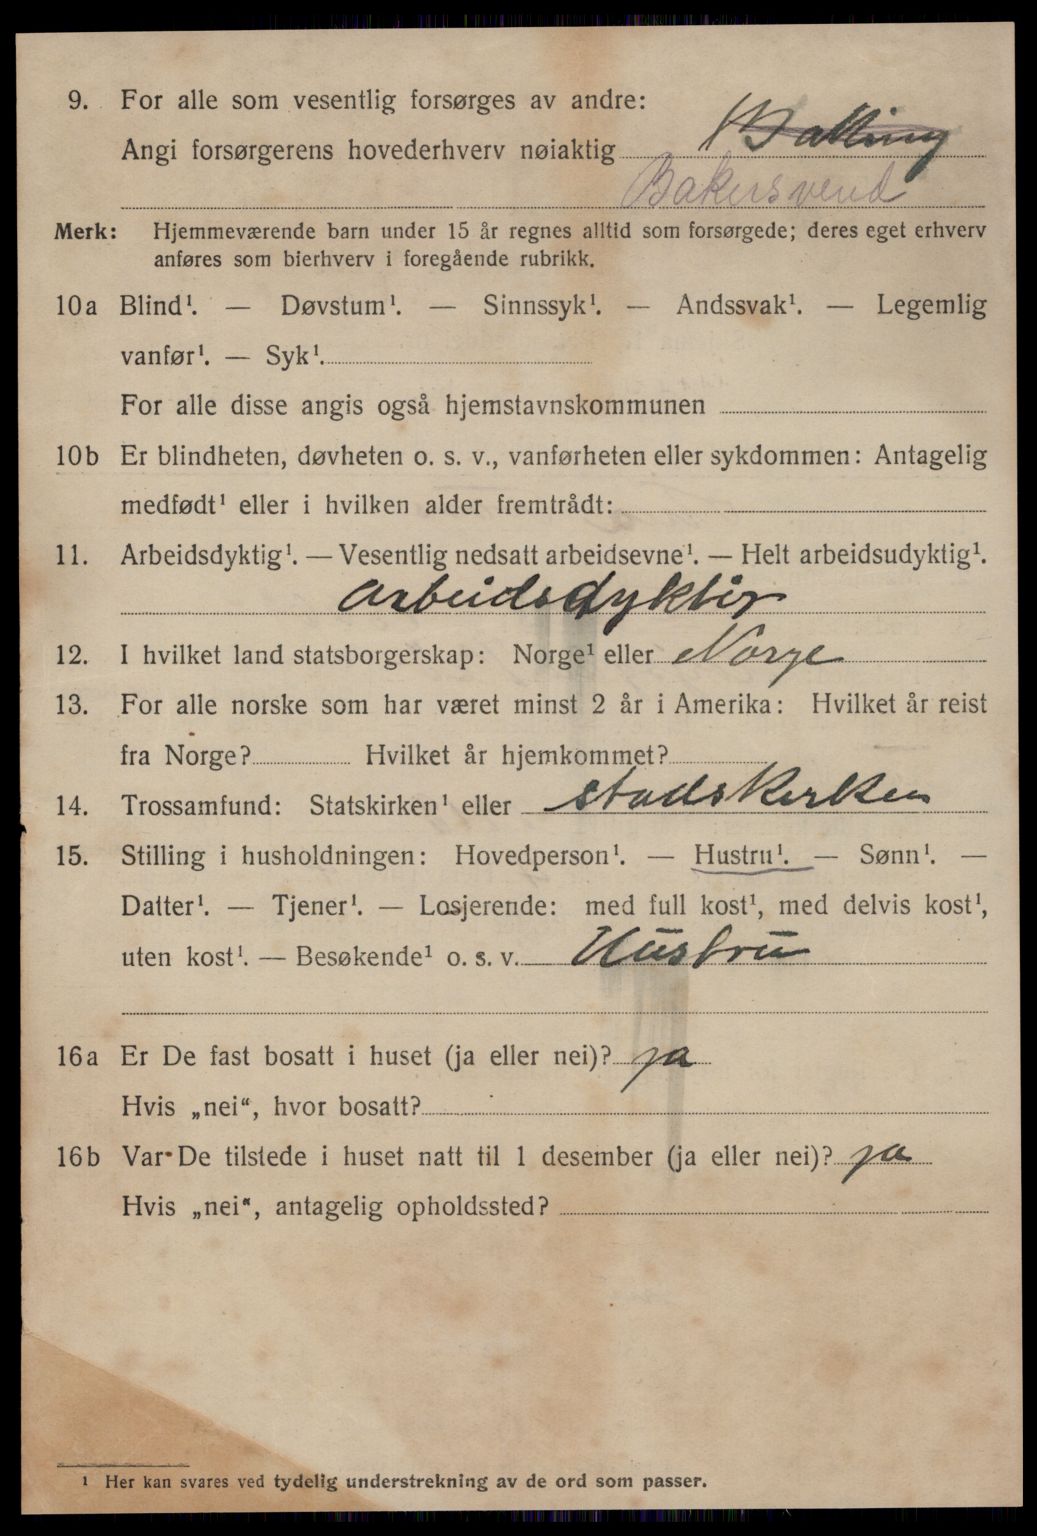 9. For alle som vesentlig forsørges av andre:
Angi forsørgerens hovederhverv nøiaktig
Bakersvend
Merk: Hjemmeværende barn under 15 år regnes alltid som forsørgede; deres eget erhverv
anføres som bierhverv i foregående rubrikk.
10a Blind¹. — Døvstum¹. — Sinnssyk¹. — Andssvak¹. — Legemlig
vanfør¹. — Syk¹.
For alle disse angis også hjemstavnskommunen
10b Er blindheten, døvheten o. s. v., vanførheten eller sykdommen: Antagelig
medfødt¹ eller i hvilken alder fremtrådt:
11. Arbeidsdyktig¹. — Vesentlig nedsatt arbeidsevne¹. — Helt arbeidsudyktig¹.
Arbeidsdyktig
12. I hvilket land statsborgerskap: Norge¹ eller Norge
13. For alle norske som har været minst 2 år i Amerika: Hvilket år reist
fra Norge? Hvilket år hjemkommet?
14. Trossamfund: Statskirken¹ eller stadskirken
15. Stilling i husholdningen: Hovedperson¹. — Hustru¹. — Sønn¹. —
Datter¹. — Tjener¹. — Losjerende: med full kost¹, med delvis kost¹,
uten kost¹. — Besøkende¹ o. s. v. Hustru
16a Er De fast bosatt i huset (ja eller nei)? ja
Hvis „nei“, hvor bosatt?
16b Var De tilstede i huset natt til 1 desember (ja eller nei)? ja
Hvis „nei“, antagelig opholdssted?
¹ Her kan svares ved tydelig understrekning av de ord som passer.